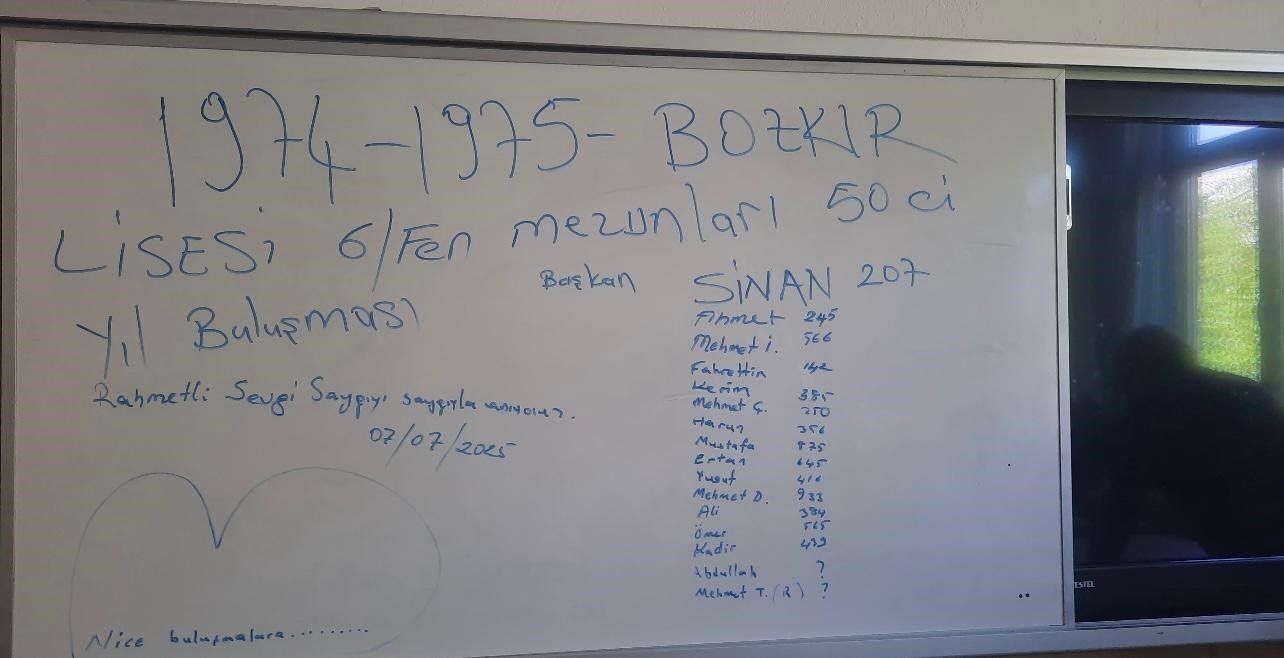 1974-1975- BOZKIR
LİSESİ 6/Fen mezunları 50 ci
Yıl Buluşması
Rahmetli Sevgi Saygıyı saygıyla anıyoruz.
07/07/2025
Başkan SİNAN 207
Ahmet 245
Mehmet İ. 566
Fahrettin 142
Kerim 385
Mehmet Ç. 250
Harun 356
Mustafa 875
Ertan 645
Yusuf 416
Mehmet D. 933
Ali 394
Ömer 565
Kadir 439
Abdullah ?
Mehmet T. (R) ?
Nice buluşmalara.........
ESTEL